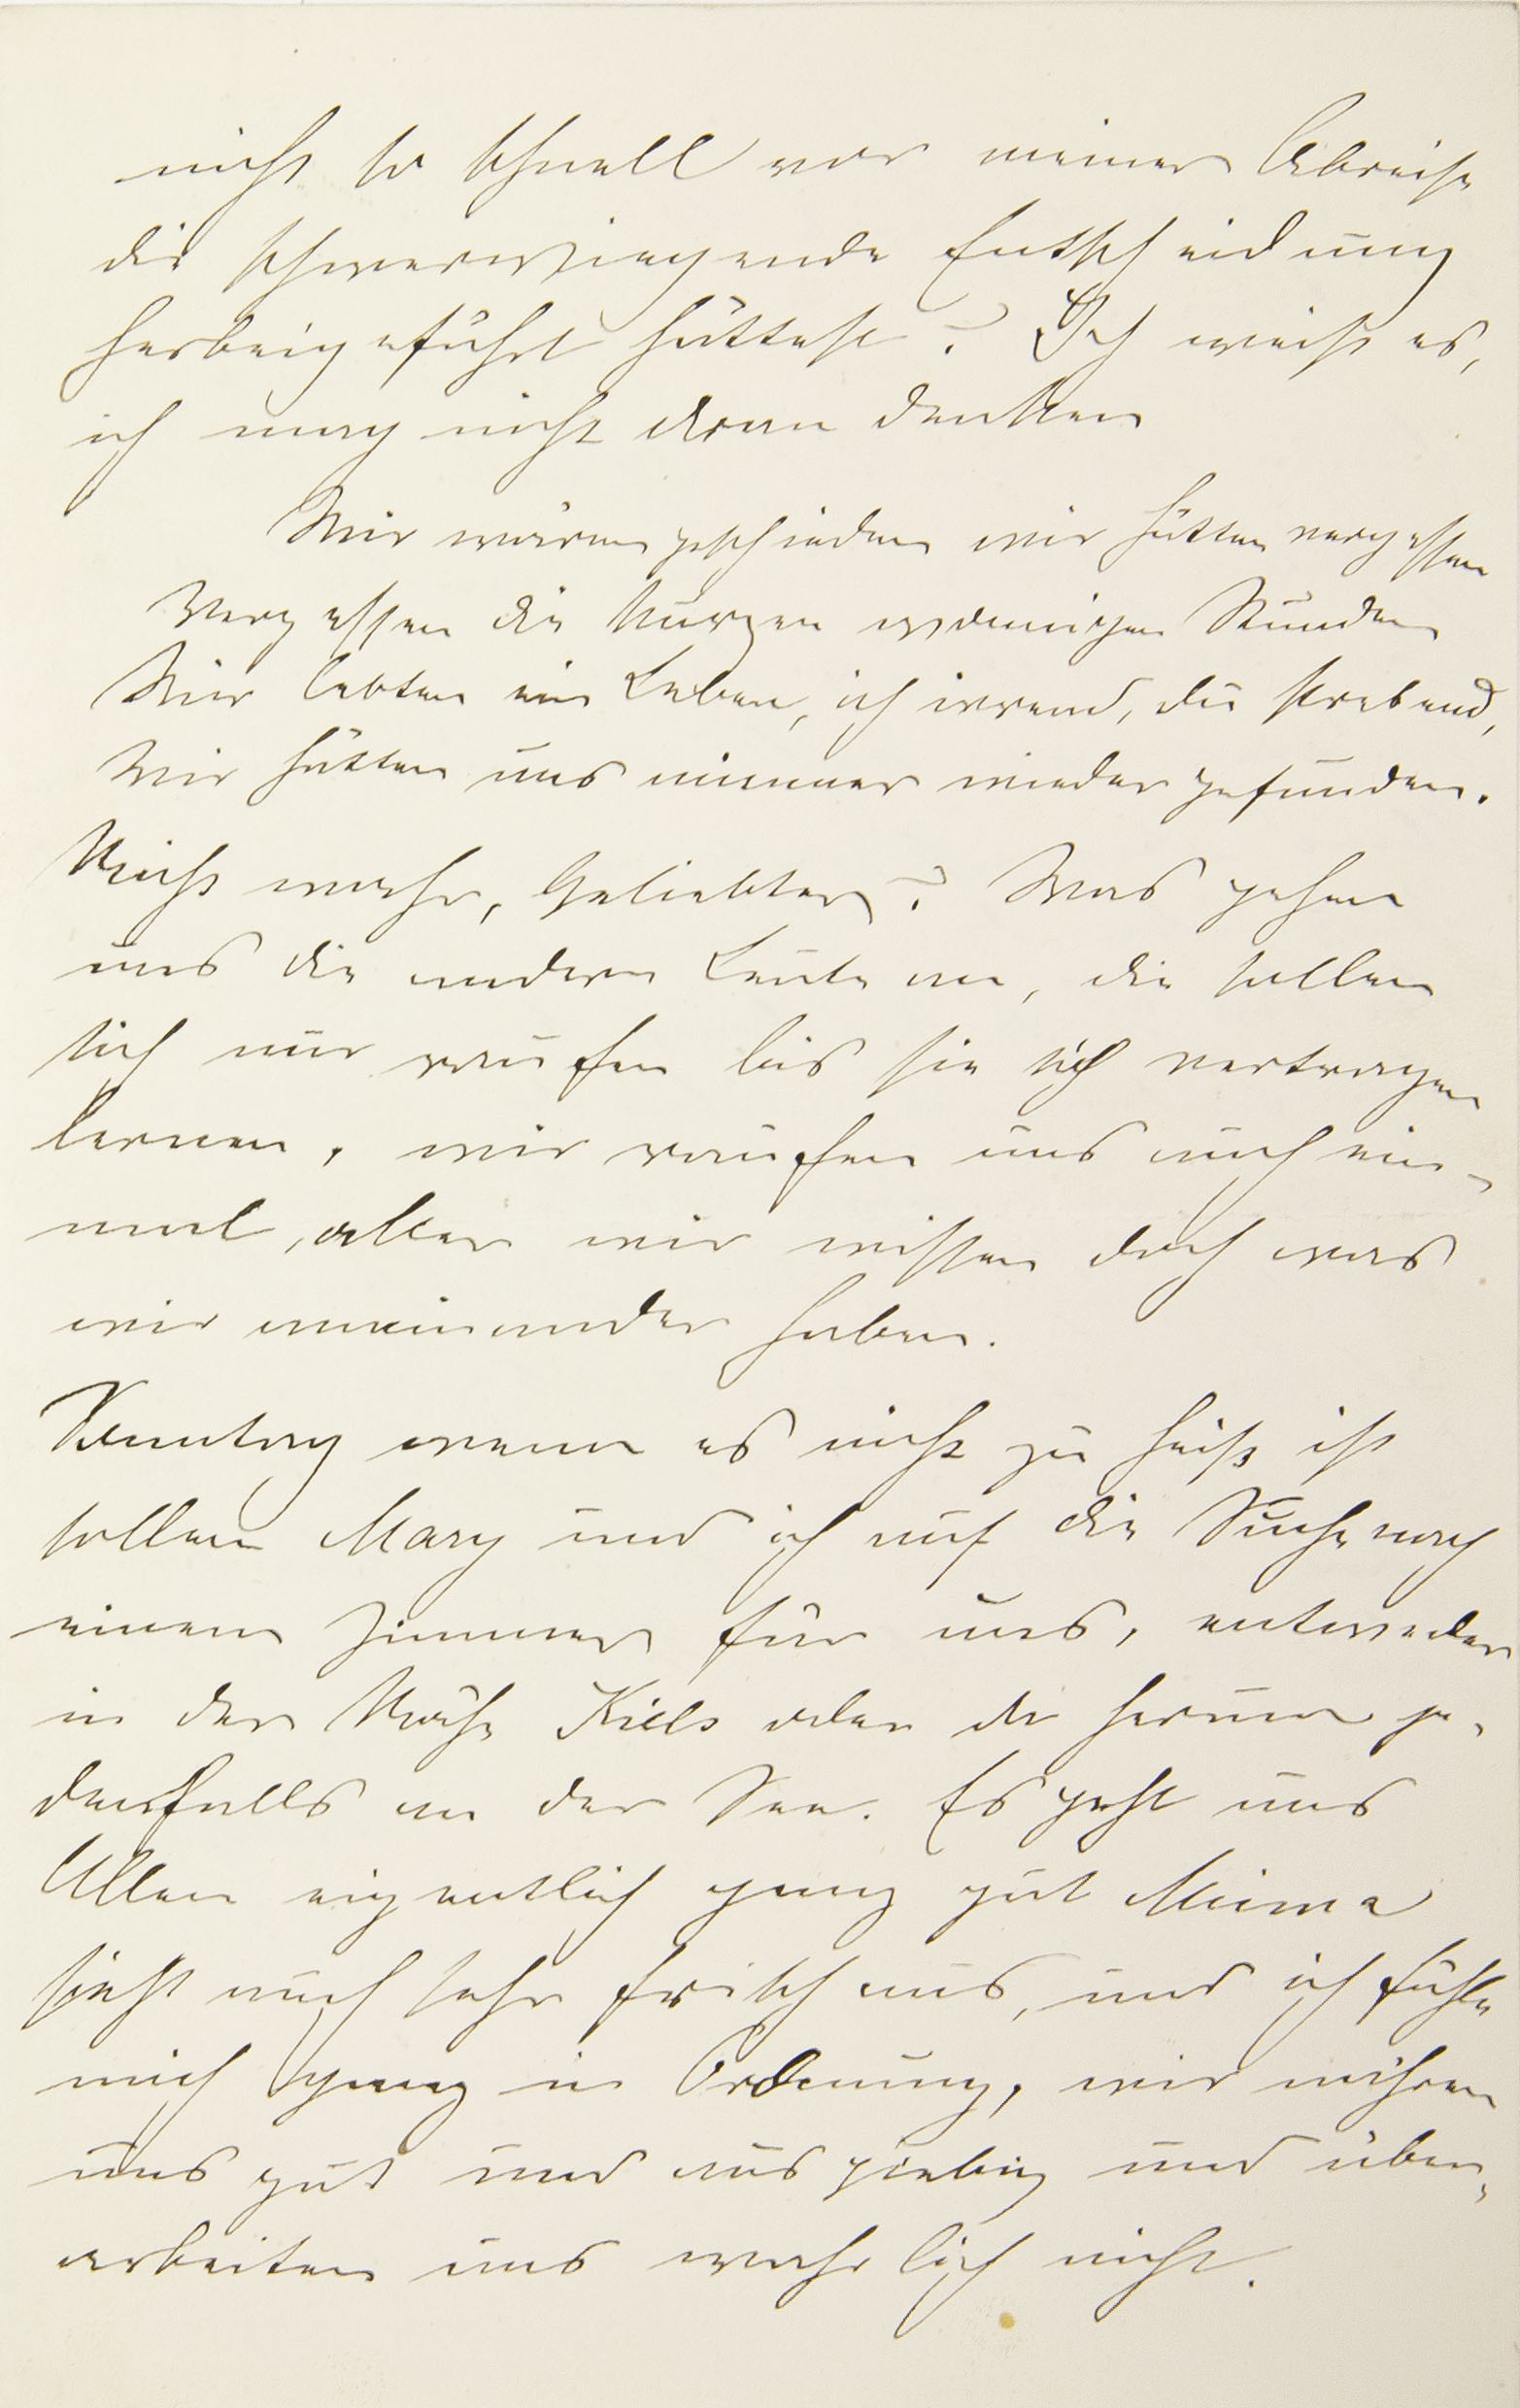 nicht so schnell vor meiner Abreise
die schwerwiegende Entscheidung
herbeigeführt hättest? Ich weiß es,
ich mag nicht dran denken
Wir wären geschieden wir hätten vergessen
Vergessen die kurzen wonnigen Stunden
Wir lebten ein Leben, ich irrend, du strebend,
Wir hätten uns nimmer wieder gefunden.
Nicht wahr, Geliebter? Was gehen
uns die andern Leute an, die sollen
sich nur raufen bis sie sich vertragen
lernen, wir raufen uns auch ein-
mal, aber wir wissen doch was
wir aneinander haben.
Sonntag wenn es nicht zu heiß ist
sollen Mary und ich auf die Suche nach
einem Zimmer für uns, entweder
in der Nähe Kiels oder da herum je-
denfalls an der See. Es geht uns
Allen eigentlich ganz gut
sieht auch sehr frisch aus, und ich fühle
mich ganz in Ordnung, wir nähren
uns gut und ausgiebig und über-
arbeiten uns wahrlich nicht.